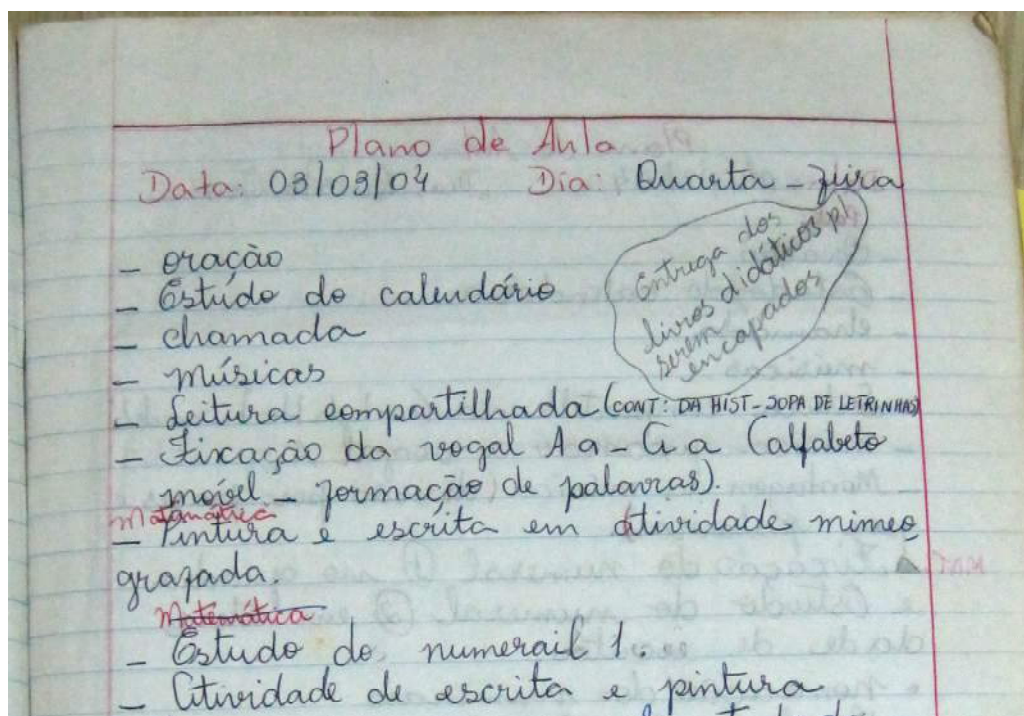 Plano de Aula
Data: 03/03/04 Dia: Quarta-feira
Entrega dos
livros didáticos p/
serem
encapados
- oração
- Estudo do calendário
- chamada
- músicas
- Leitura compartilhada (CONT: DA HIST - SOPA DE LETRINHAS)
- Fixação da vogal A a - A a (alfabeto
móvel - formação de palavras).
Matemática
- Pintura e escrita em atividade mimeo
grafada.
Matemática
- Estudo do numerail 1.
- Atividade de escrita e pintura